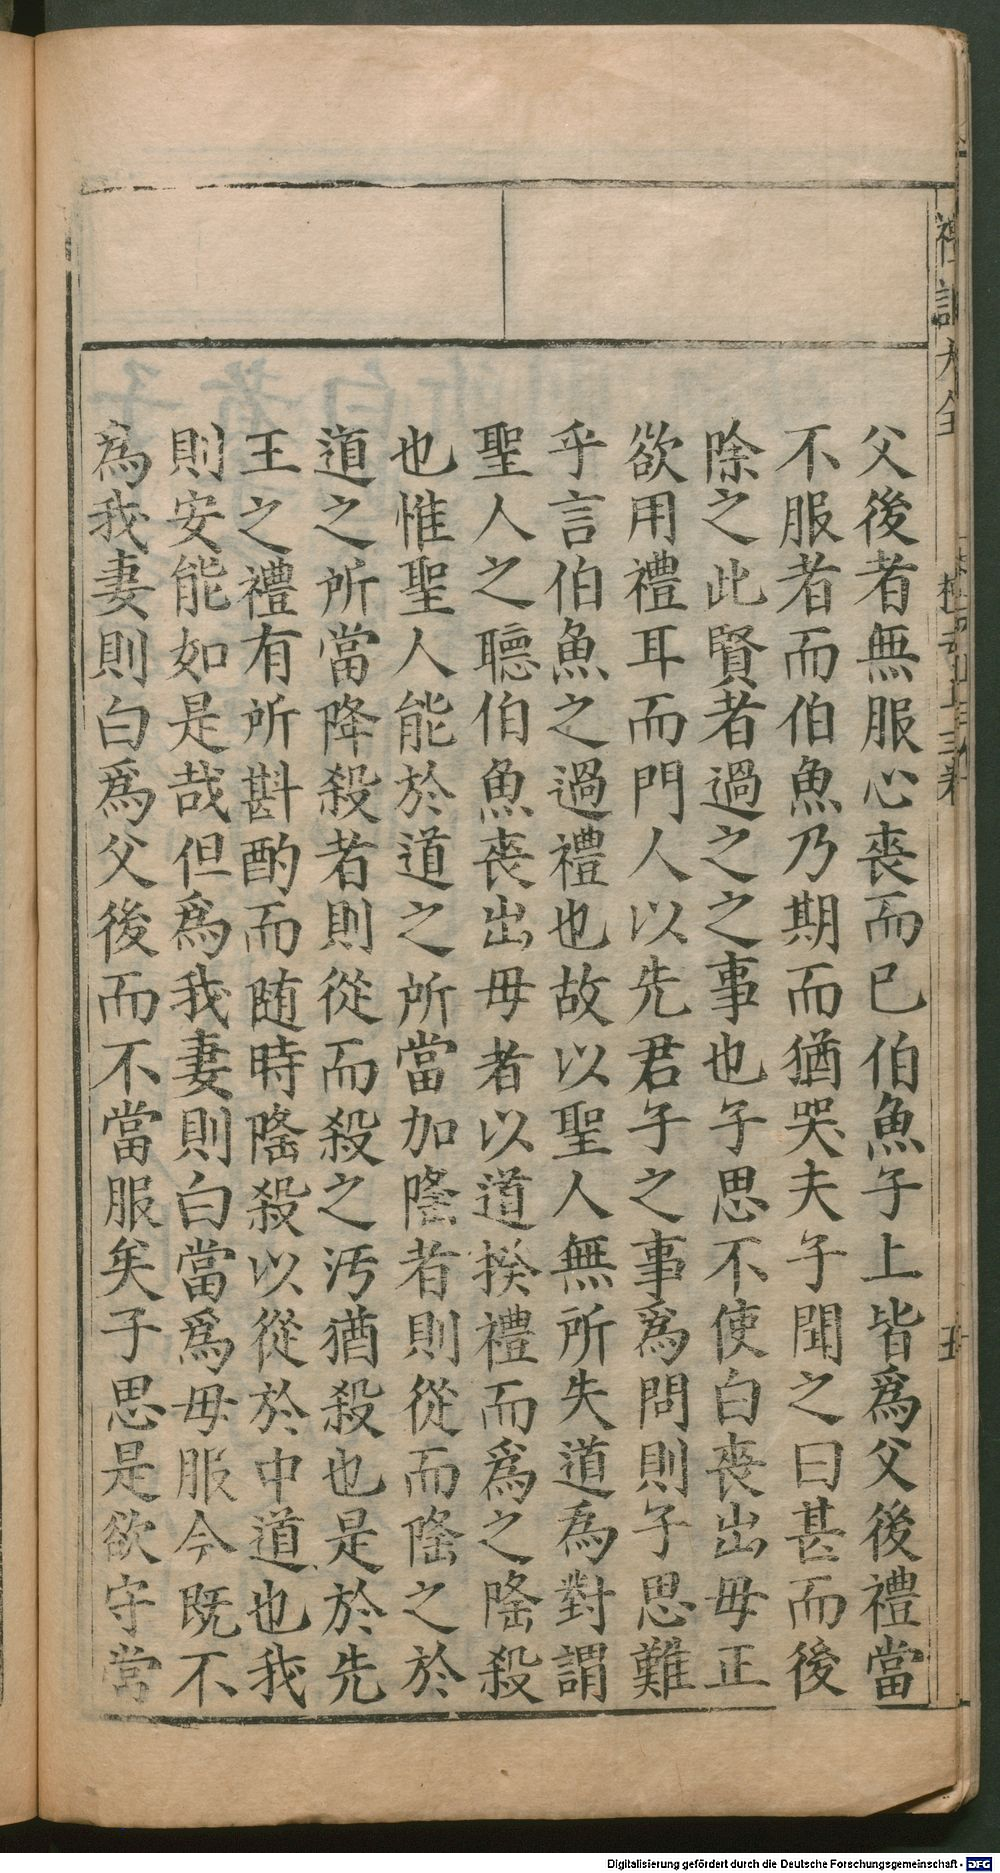 父後者無服心喪而已伯魚子上皆為父後禮當
不服者而伯魚乃期而猶哭夫子聞之曰甚而後
除之此賢者過之之事也子思不使白喪出毋正
欲用禮耳而門人以先君子之事為問則子思難
乎言伯魚之過禮也故以聖人無所失道為對謂
聖人之聽伯魚喪出毋者以道揆禮而為之隆殺
也惟聖人能於道之所當加隆者則從而隆之於
道之所當降殺者則從而殺之汚猶殺也是於先
王之禮有所斟酌而随時隆殺以從於中道也我
則安能如是哉但為我妻則白當為毋服今既不
為我妻則白為父後而不當服矣子思是欲守常
禮記大全
檀弓上三卷
Digitalisierung gefördert durch die Deutsche Forschungsgemeinschaft - DFG